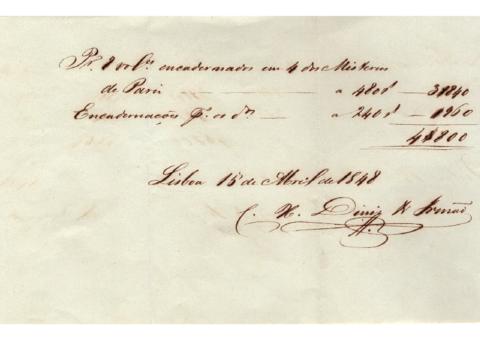 Pr. 8 vol.es encadernados em 4 dos Misterios
de Paris — a 480 r — 3$840
Encadernações p.a os d.os — a 240 r — $960
4$800
Lisboa 15 de Abril de 1848
C. H. Diniz & Irmão